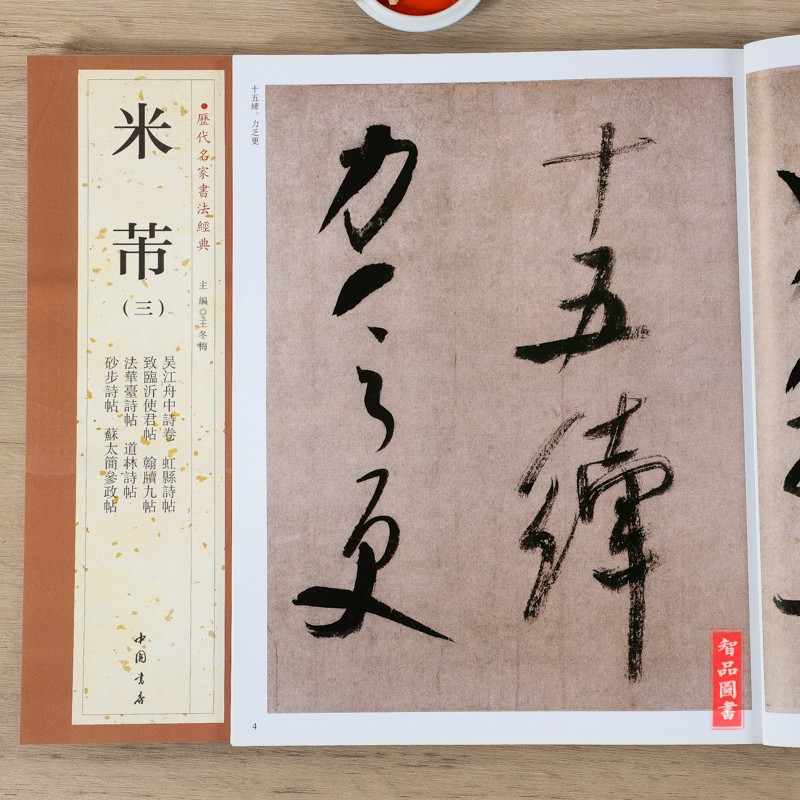 米芾
（三）
●歷代名家書法經典
主編◎王冬梅
吴江舟中詩卷 虹縣詩帖
致臨沂使君帖 翰牘九帖
法華臺詩帖 道林詩帖
砂步詩帖 蘇太簡參政帖
中國書店
十五縴。力乏更
十五縴
力乏更
4
智品圖書